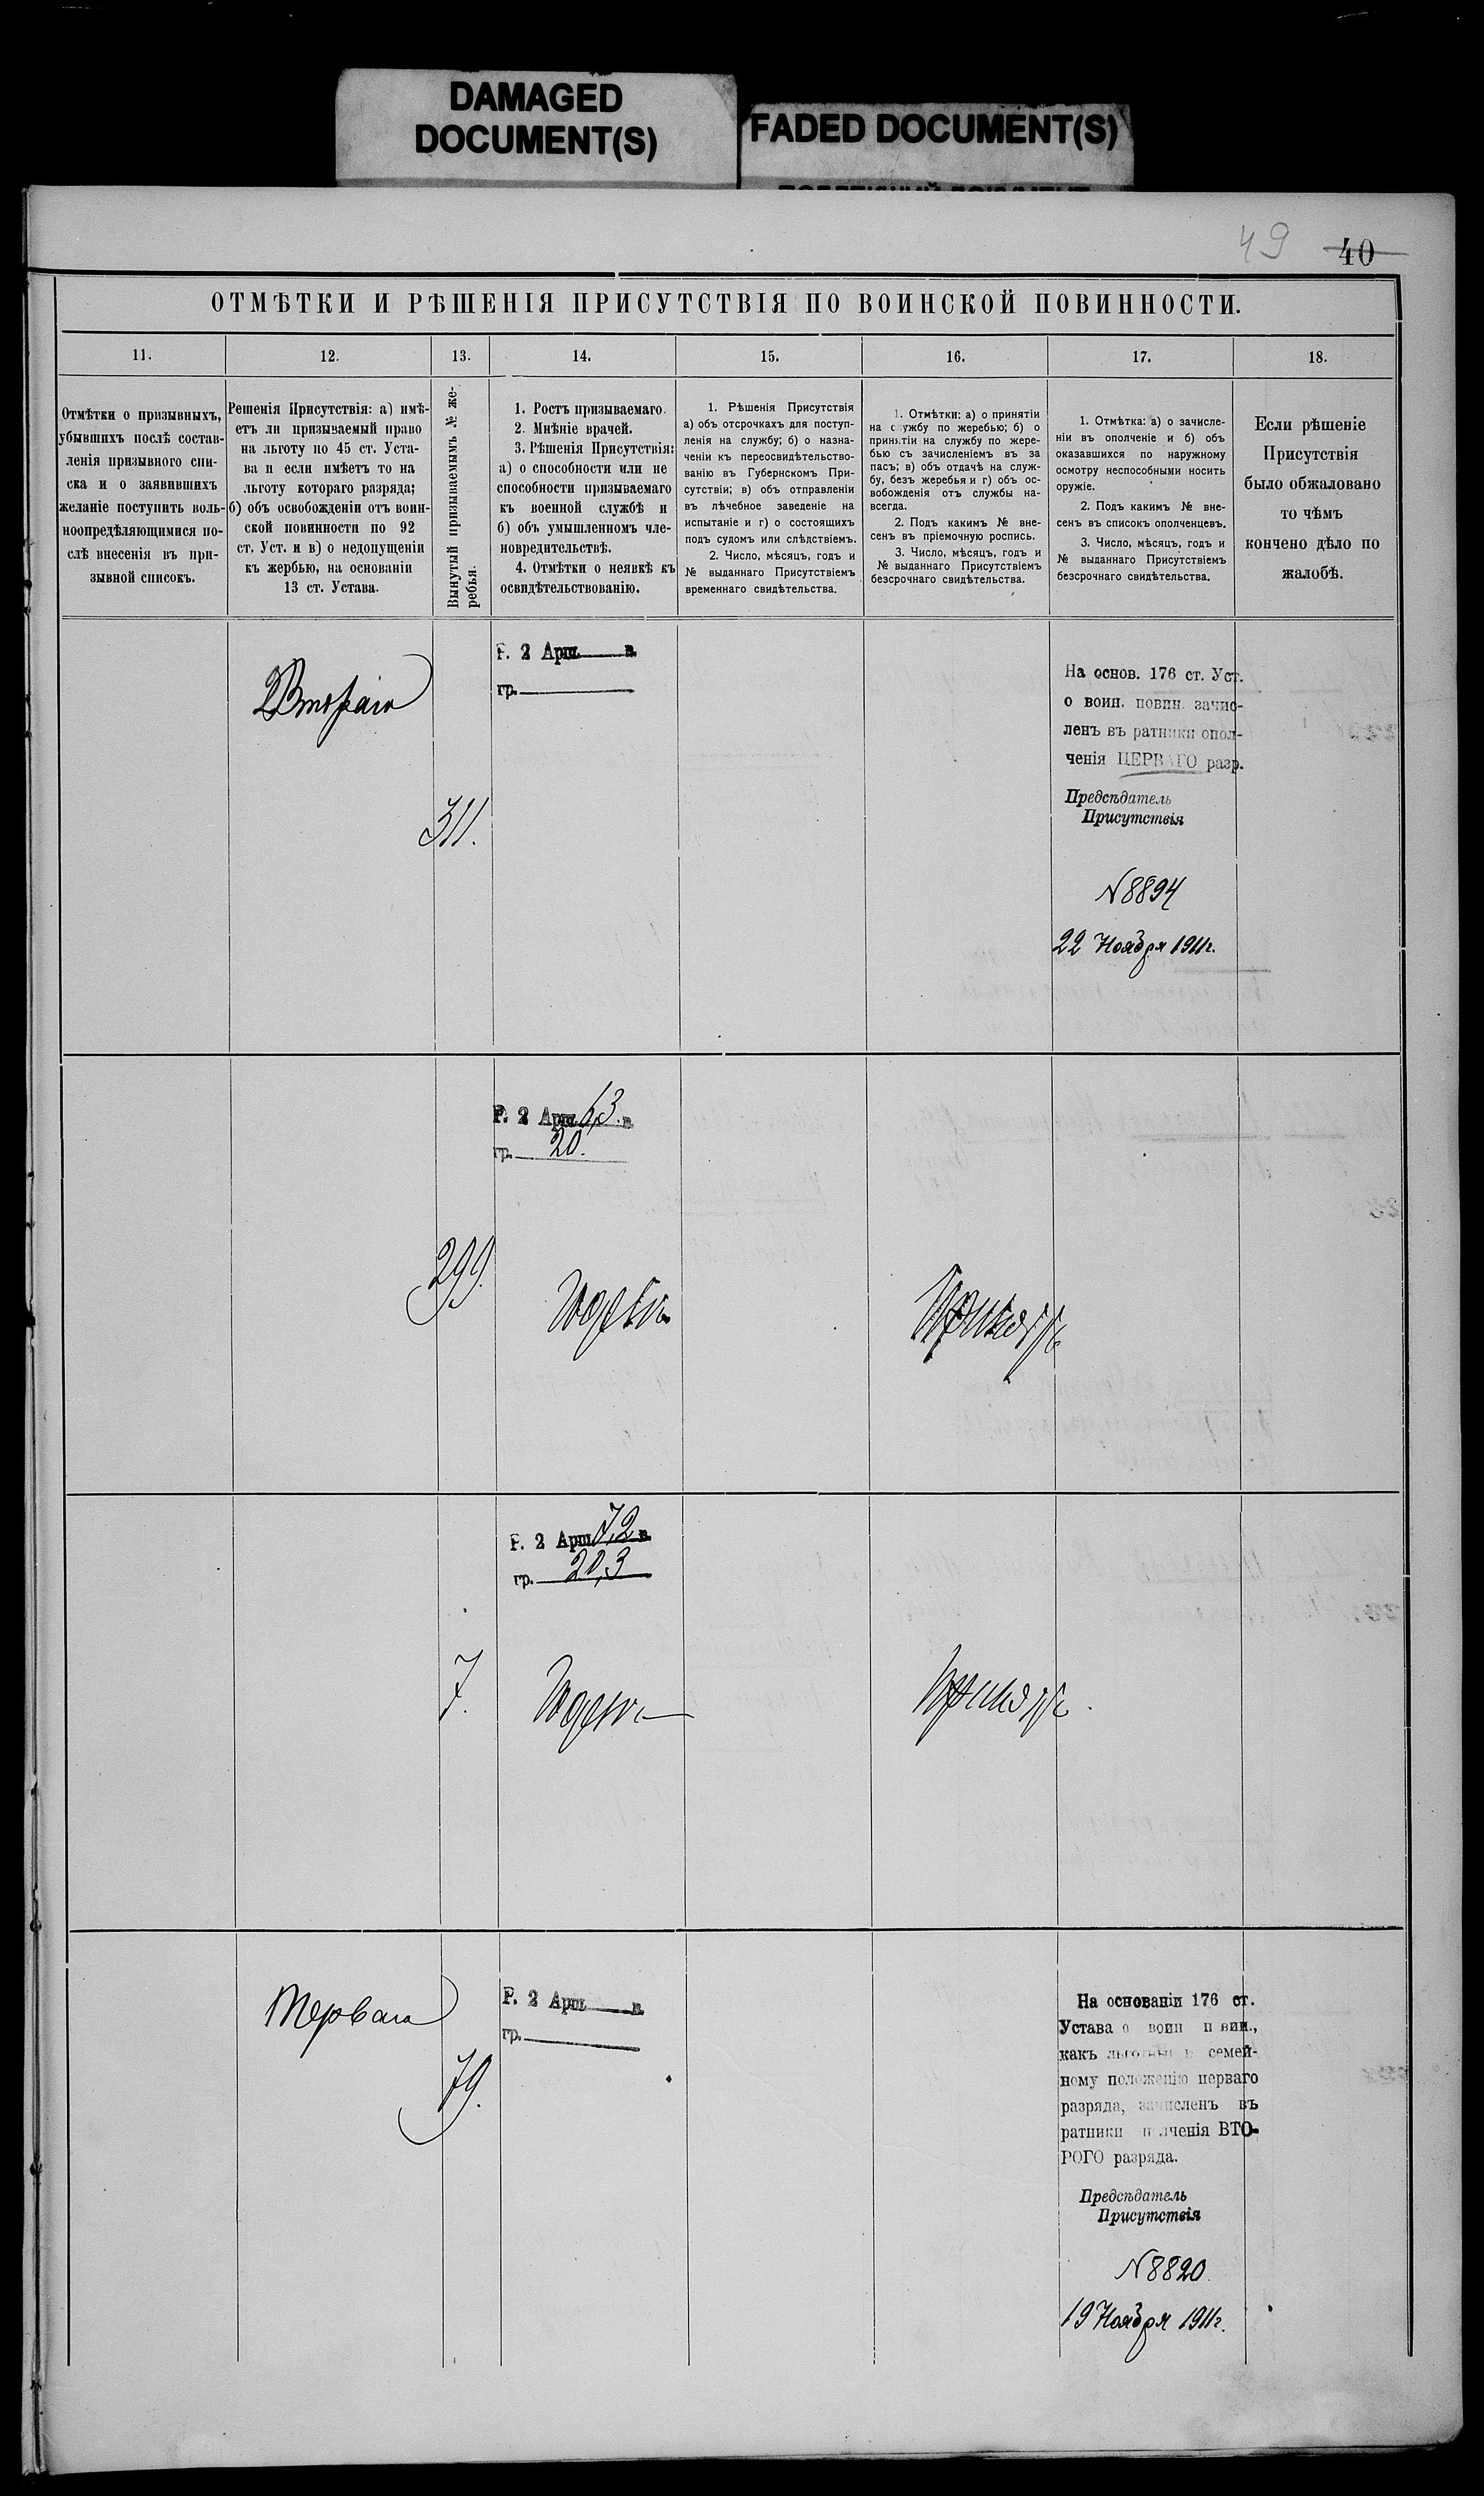 DAMAGED
DOCUMENT(S)
FADED DOCUMENT(S)
49
40
ОТМѢТКИ И РѢШЕНІЯ ПРИСУТСТВІЯ ПО ВОИНСКОЙ ПОВИННОСТИ.
11.
12.
13.
14.
15.
16.
17.
18.
Отмѣтки о призывныхъ,
убывшихъ послѣ состав-
ленія призывного спи-
ска и о заявившихъ
желаніе поступить воль-
ноопредѣляющимися по-
слѣ внесенія въ при-
зывной списокъ.
Решенія Присутствія: а) имѣ-
етъ ли призываемый право
на льготу по 45 ст. Уста-
ва и если имѣетъ то на
льготу котораго разряда;
б) объ освобожденіи отъ воин-
ской повинности по 92
ст. Уст. и в) о недопущеніи
къ жербью, на основаніи
13 ст. Устава.
Вынутый призываемымъ № же-
ребья.
1. Ростъ призываемаго.
2. Мнѣніе врачей.
3. Рѣшенія Присутствія:
а) о способности или не
способности призываемаго
къ военной службѣ и
б) объ умышленномъ чле-
новредительствѣ.
4. Отмѣтки о неявкѣ къ
освидѣтельствованію.
1. Рѣшенія Присутствія
а) объ отсрочкахъ для поступ-
ленія на службу; б) о назна-
ченіи къ переосвидѣтельство-
ванію въ Губернскомъ При-
сутствіи; в) объ отправленіи
въ лѣчебное заведеніе на
испытаніе и г) о состоящихъ
подъ судомъ или слѣдствіемъ.
2. Число, мѣсяцъ, годъ и
№ выданнаго Присутствіемъ
временнаго свидѣтельства.
1. Отмѣтки: а) о принятіи
на службу по жеребью; б) о
принятіи на службу по жере-
бью съ зачисленіемъ въ за
пасъ; в) объ отдачѣ на служ-
бу, безъ жеребья и г) объ ос-
вобожденія отъ службы на-
всегда.
2. Подъ какимъ № вне-
сенъ въ пріемочную роспись.
3. Число, мѣсяцъ, годъ и
№ выданнаго Присутствіемъ
безсрочнаго свидѣтельства.
1. Отмѣтка: а) о зачисле-
ніи въ ополченіе и б) объ
оказавшихся по наружному
осмотру неспособными носить
оружіе.
2. Подъ какимъ № вне-
сенъ въ списокъ ополченцевъ.
3. Число, мѣсяцъ, годъ и
№ выданнаго Присутствіемъ
безсрочнаго свидѣтельства.
Если рѣшеніе
Присутствія
было обжаловано
то чѣмъ
кончено дѣло по
жалобѣ.
Втораго
311.
Р. 2 Арш. в.
гр.
На основ. 176 ст. Уст.
о воин. повин. зачис-
ленъ въ ратники опол-
ченія ПЕРВАГО разр.
Предсѣдатель
Присутствія
№8894
22 Ноября 1911г.
299.
Р. 2 Арш. 6,3. в.
гр. 20.
Годенъ
Принятъ
7.
Р. 2 Арш. 7,2 в.
гр. 20,3
Годенъ
Принятъ.
Перваго
79.
Р. 2 Арш. в.
гр.
На основаніи 176 ст.
Устава о воин повин.,
какъ льготный по семей-
ному положенію перваго
разряда, зачисленъ въ
ратники ополченія ВТО-
РОГО разряда.
Предсѣдатель
Присутствія
№8820.
19 Ноября 1911г.